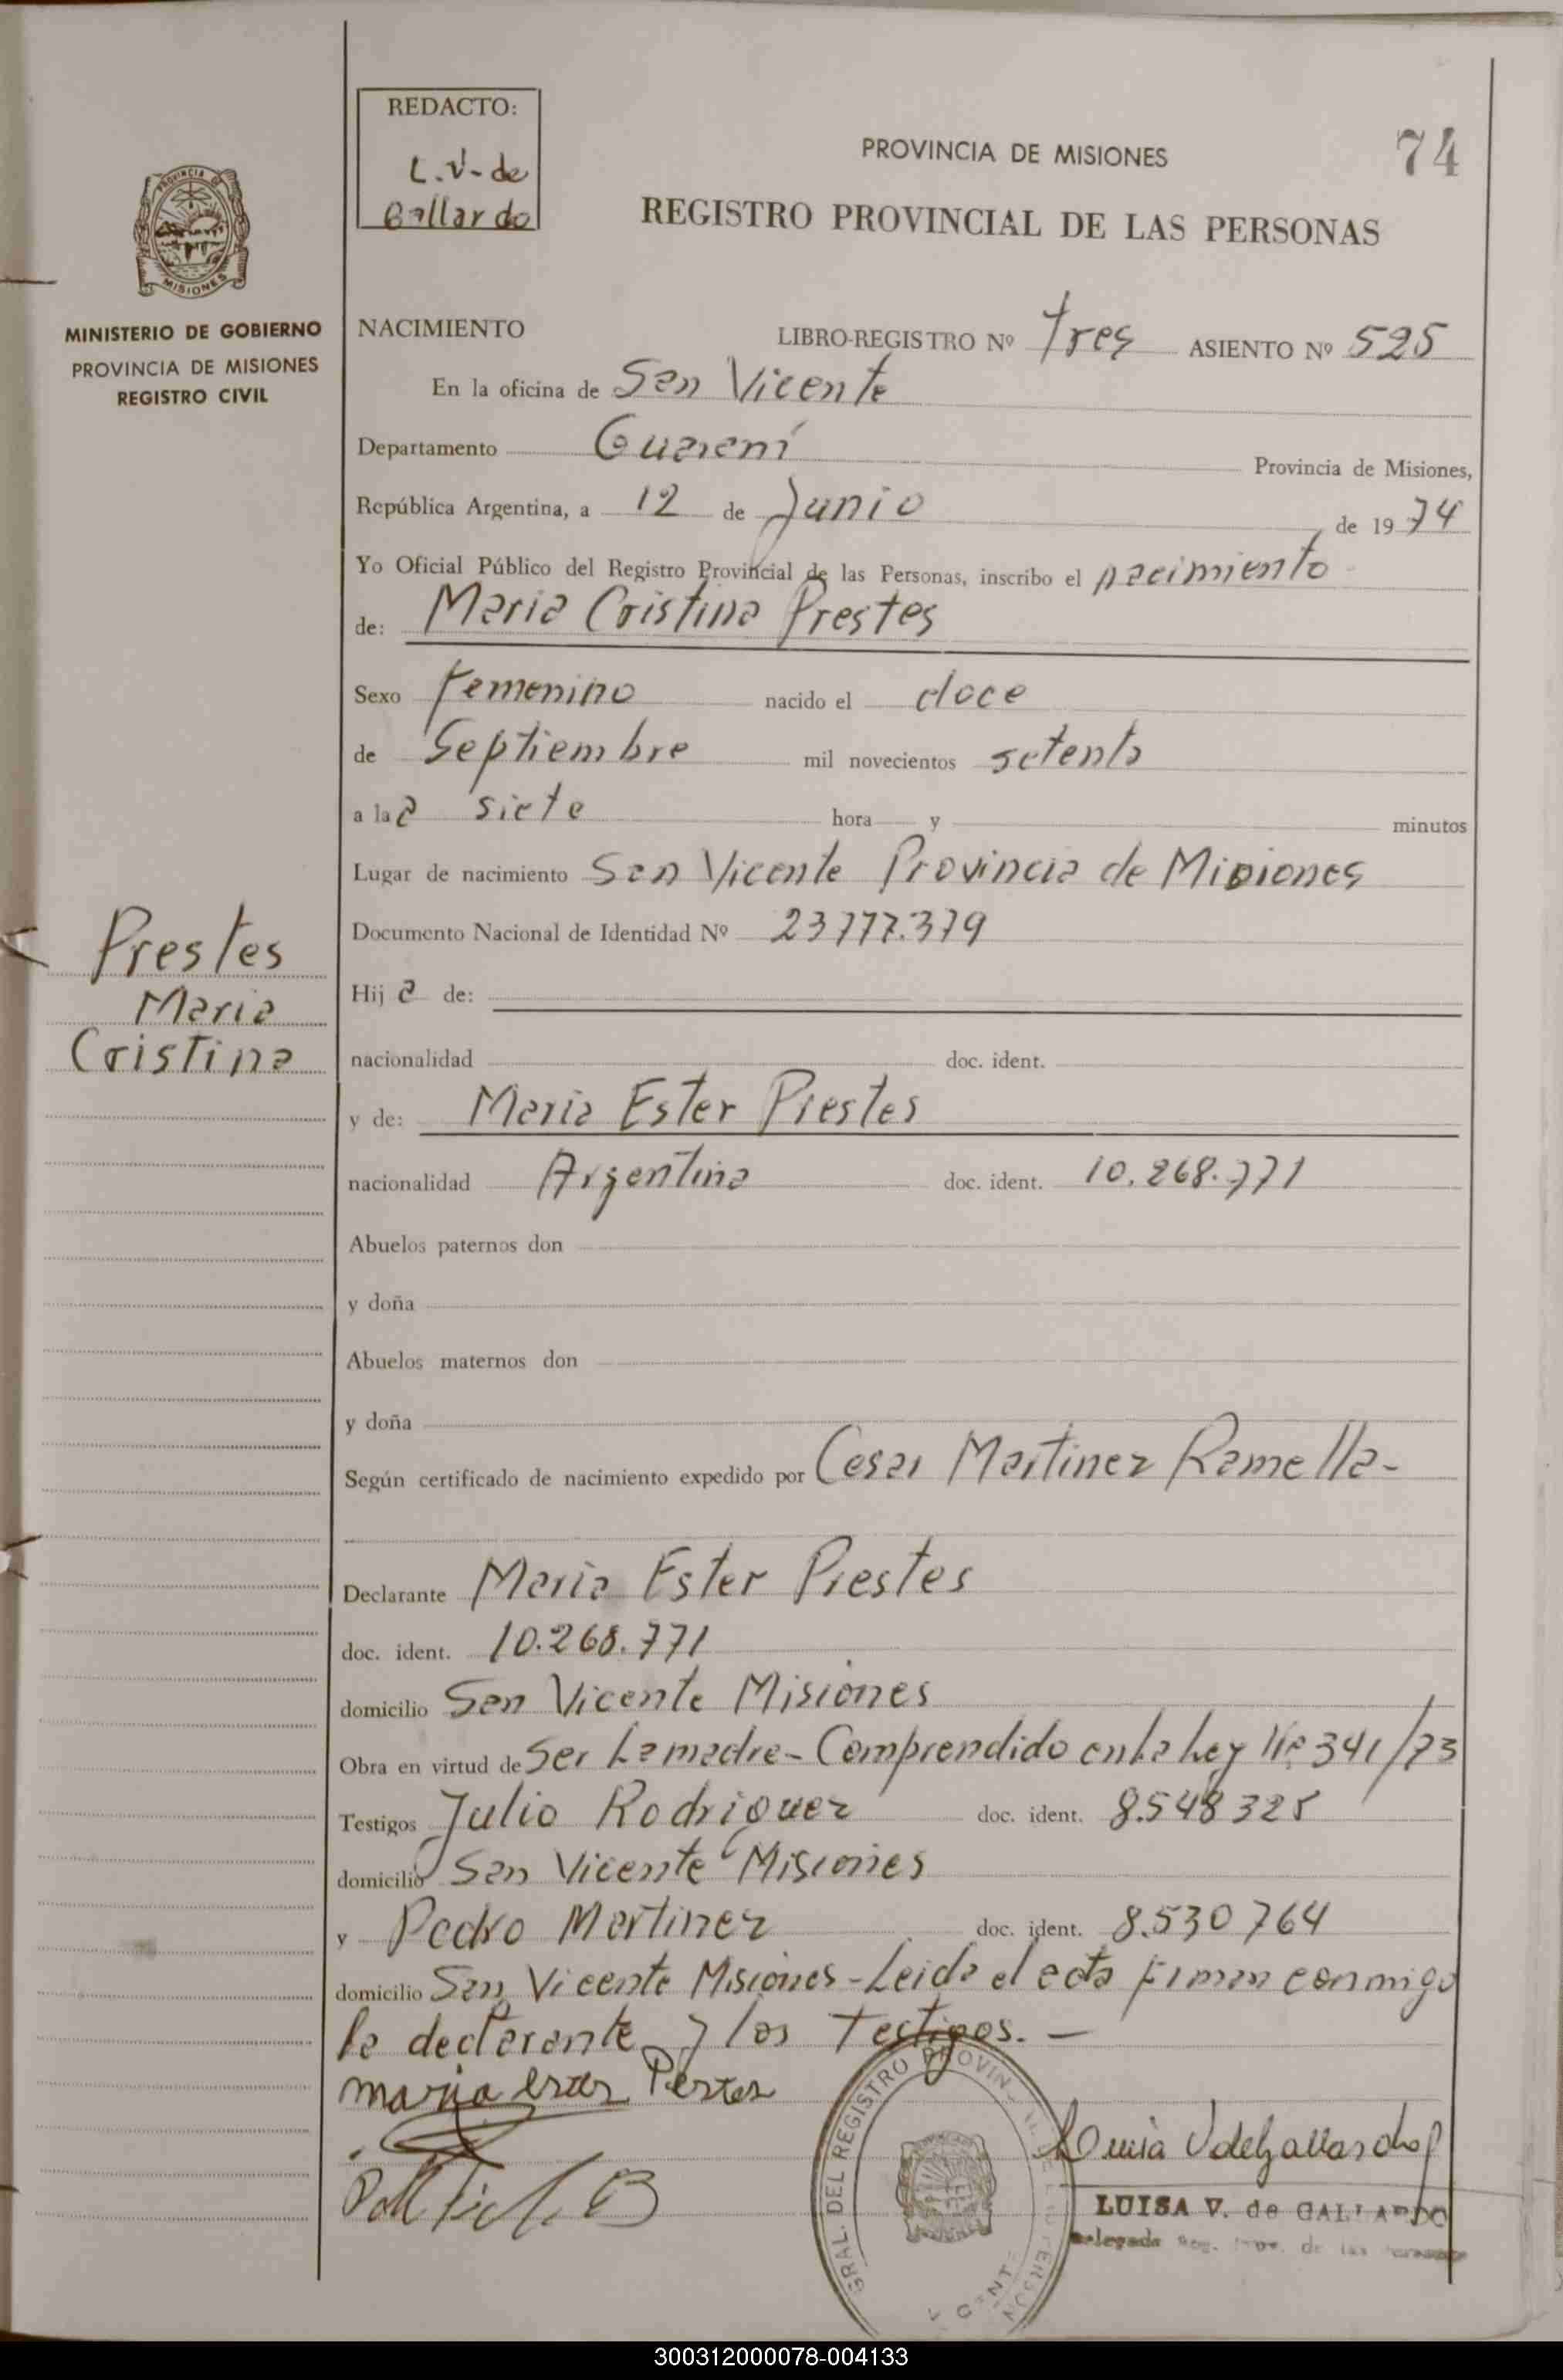 REDACTO:
L.V. de
Gallardo
PROVINCIA DE MISIONES
74
REGISTRO PROVINCIAL DE LAS PERSONAS
PROVINCIA DE
MISIONES
MINISTERIO DE GOBIERNO
PROVINCIA DE MISIONES
REGISTRO CIVIL
NACIMIENTO
LIBRO-REGISTRO Nº tres ASIENTO Nº 525
En la oficina de San Vicente
Departamento Guaraní Provincia de Misiones,
República Argentina, a 12 de Junio de 1974
Yo Oficial Público del Registro Provincial de las Personas, inscribo el nacimiento
de: Maria Cristina Prestes
Sexo Femenino nacido el doce
de Septiembre mil novecientos setenta
a la a siete hora y minutos
Lugar de nacimiento San Vicente Provincia de Misiones
Documento Nacional de Identidad Nº 23777.379
Prestes
Maria
Cristina
Hij a de:
nacionalidad doc. ident.
y de: Maria Ester Prestes
nacionalidad Argentina doc. ident. 10.268.771
Abuelos paternos don
y doña
Abuelos maternos don
y doña
Según certificado de nacimiento expedido por Cesar Martinez Ramella-
Declarante Maria Ester Prestes
doc. ident. 10.268.771
domicilio San Vicente Misiones
Obra en virtud de Ser La madre- Comprendido en la Ley Nº 341/73
Testigos Julio Rodriguez doc. ident. 8.548325
domicilio San Vicente Misiones
y Pedro Martinez doc. ident. 8.530764
domicilio San Vicente Misiones - Leida el acta firman conmigo
la declarante y los Testigos. —
maria ester Prestes
GRAL. DEL REGISTRO PROVIN
Luisa V de Gallardo
LUISA V. de GALLARDO
Delegada Reg. Prov. de las Personas
300312000078-004133